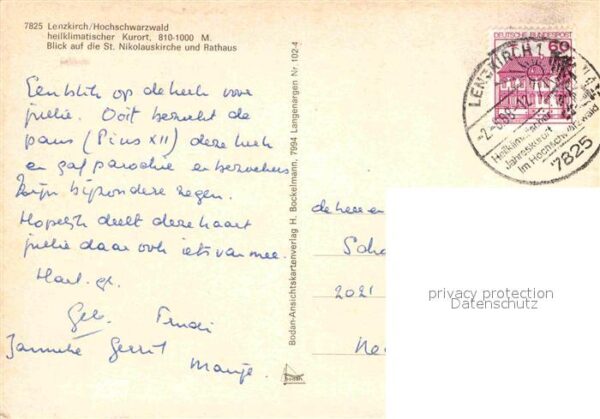 7825 Lenzkirch/Hochschwarzwald
heilklimatischer Kurort, 810-1000 M.
Blick auf die St. Nikolauskirche und Rathaus
Een blik op de kerk voor
jullie. Ooit bezocht de
paus (Pius XII) deze kerk
en gaf parochie en bezoekers
Zijn bijzondere zegen.
Hopelijk deelt deze kaart
jullie daar ook iets van mee.
Hart. gr.
Geb. Trudi
Janneke Gerrit
Marije.
Bodan-Ansichtskartenverlag H. Bockelmann, 7994 Langenargen Nr. 102-4
bodan
DEUTSCHE BUNDESPOST
60
LENZKIRCH 1
Heilklimatischer
Jahreskurort
im Hochschwarzwald
7825
de heer en
Scha
2021
privacy protection
Datenschutz